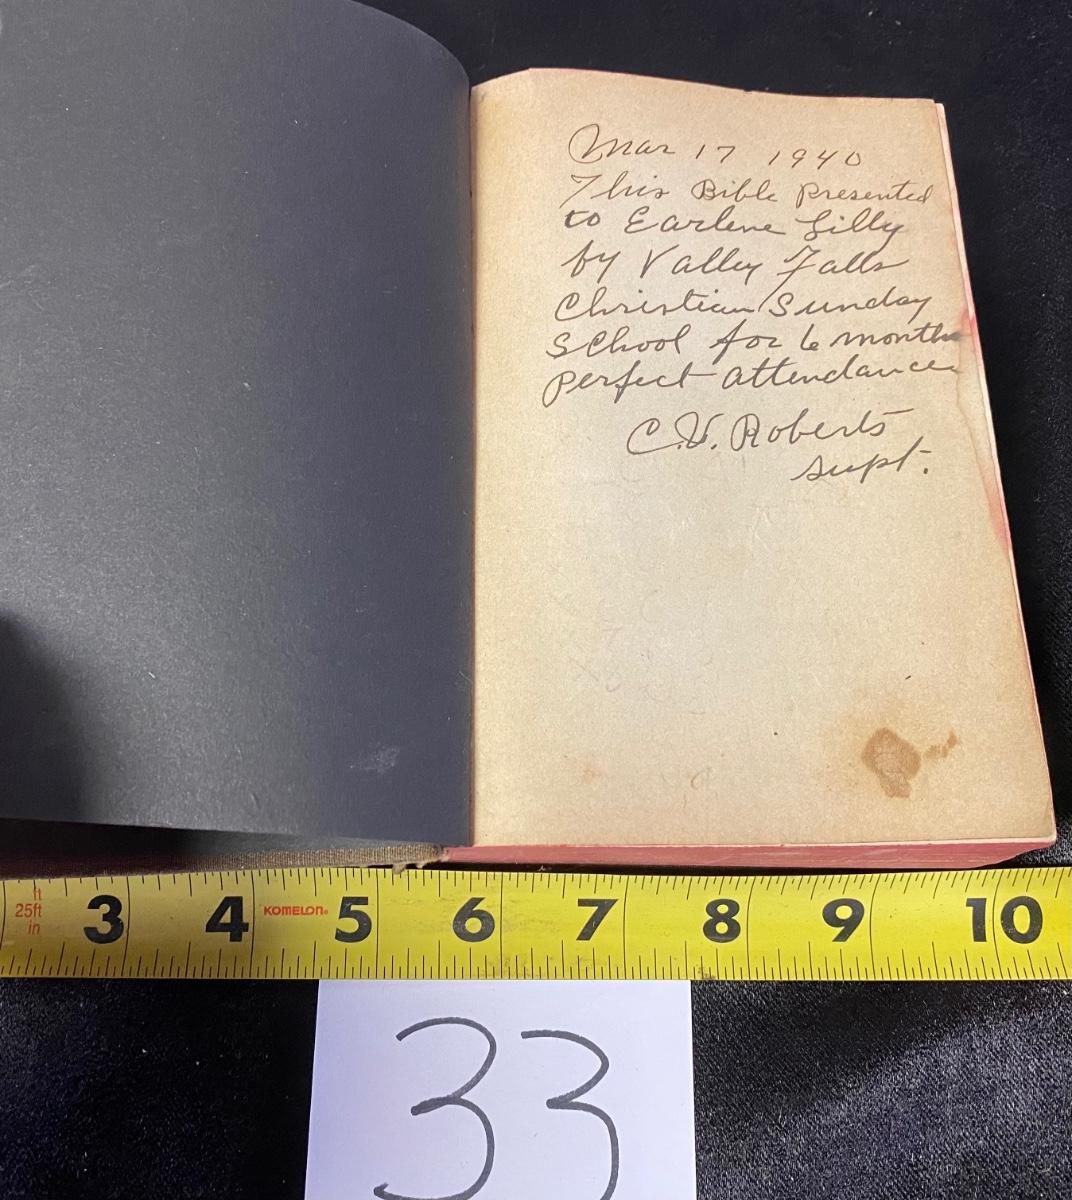 Mar 17 1940
This Bible presented
to Earlene Lilly
by Valley Falls
Christian Sunday
School for 6 months
perfect attendance
C.V. Roberts
supt.
ft
25ft
in
3 4 KOMELON® 5 6 7 8 9 10
33